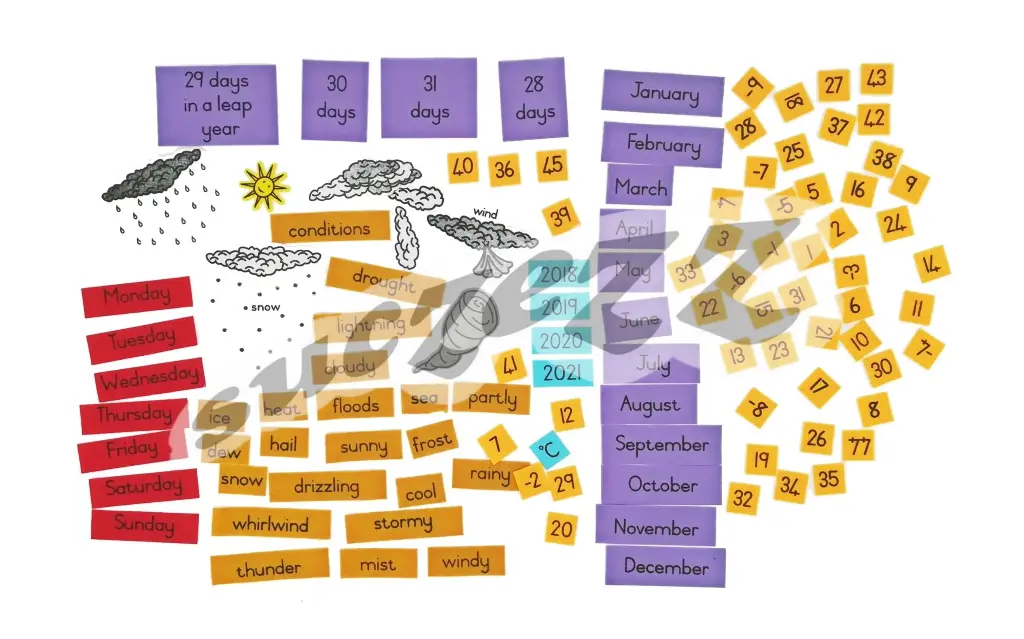 29 days
in a leap
year
30
days
31
days
28
days
January
-9
18
27
43
February
28
37
42
25
38
40
36
45
-7
March
5
16
9
39
wind
conditions
April
-4
5
2
24
3
-1
1
drought
2018
May
33
-6
14
Monday
snow
2019
22
15
31
6
11
lightning
June
Tuesday
2020
21
10
cloudy
41
2021
July
13
23
30
Wednesday
17
Thursday
ice
heat
floods
sea
partly
12
August
-8
8
Friday
dew
hail
sunny
frost
7
°C
September
26
77
Saturday
snow
drizzling
cool
rainy
-2
29
October
19
34
35
32
Sunday
whirlwind
stormy
20
November
thunder
mist
windy
December
sucrezz